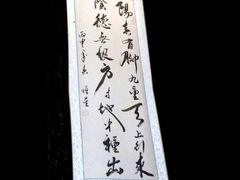 陽春有脚九重天上引來
陰德無根方寸地中種出
丙申年冬